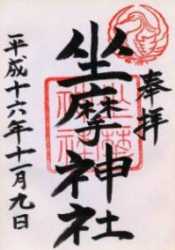 奉拝
坐摩神社
平成十六年十一月九日